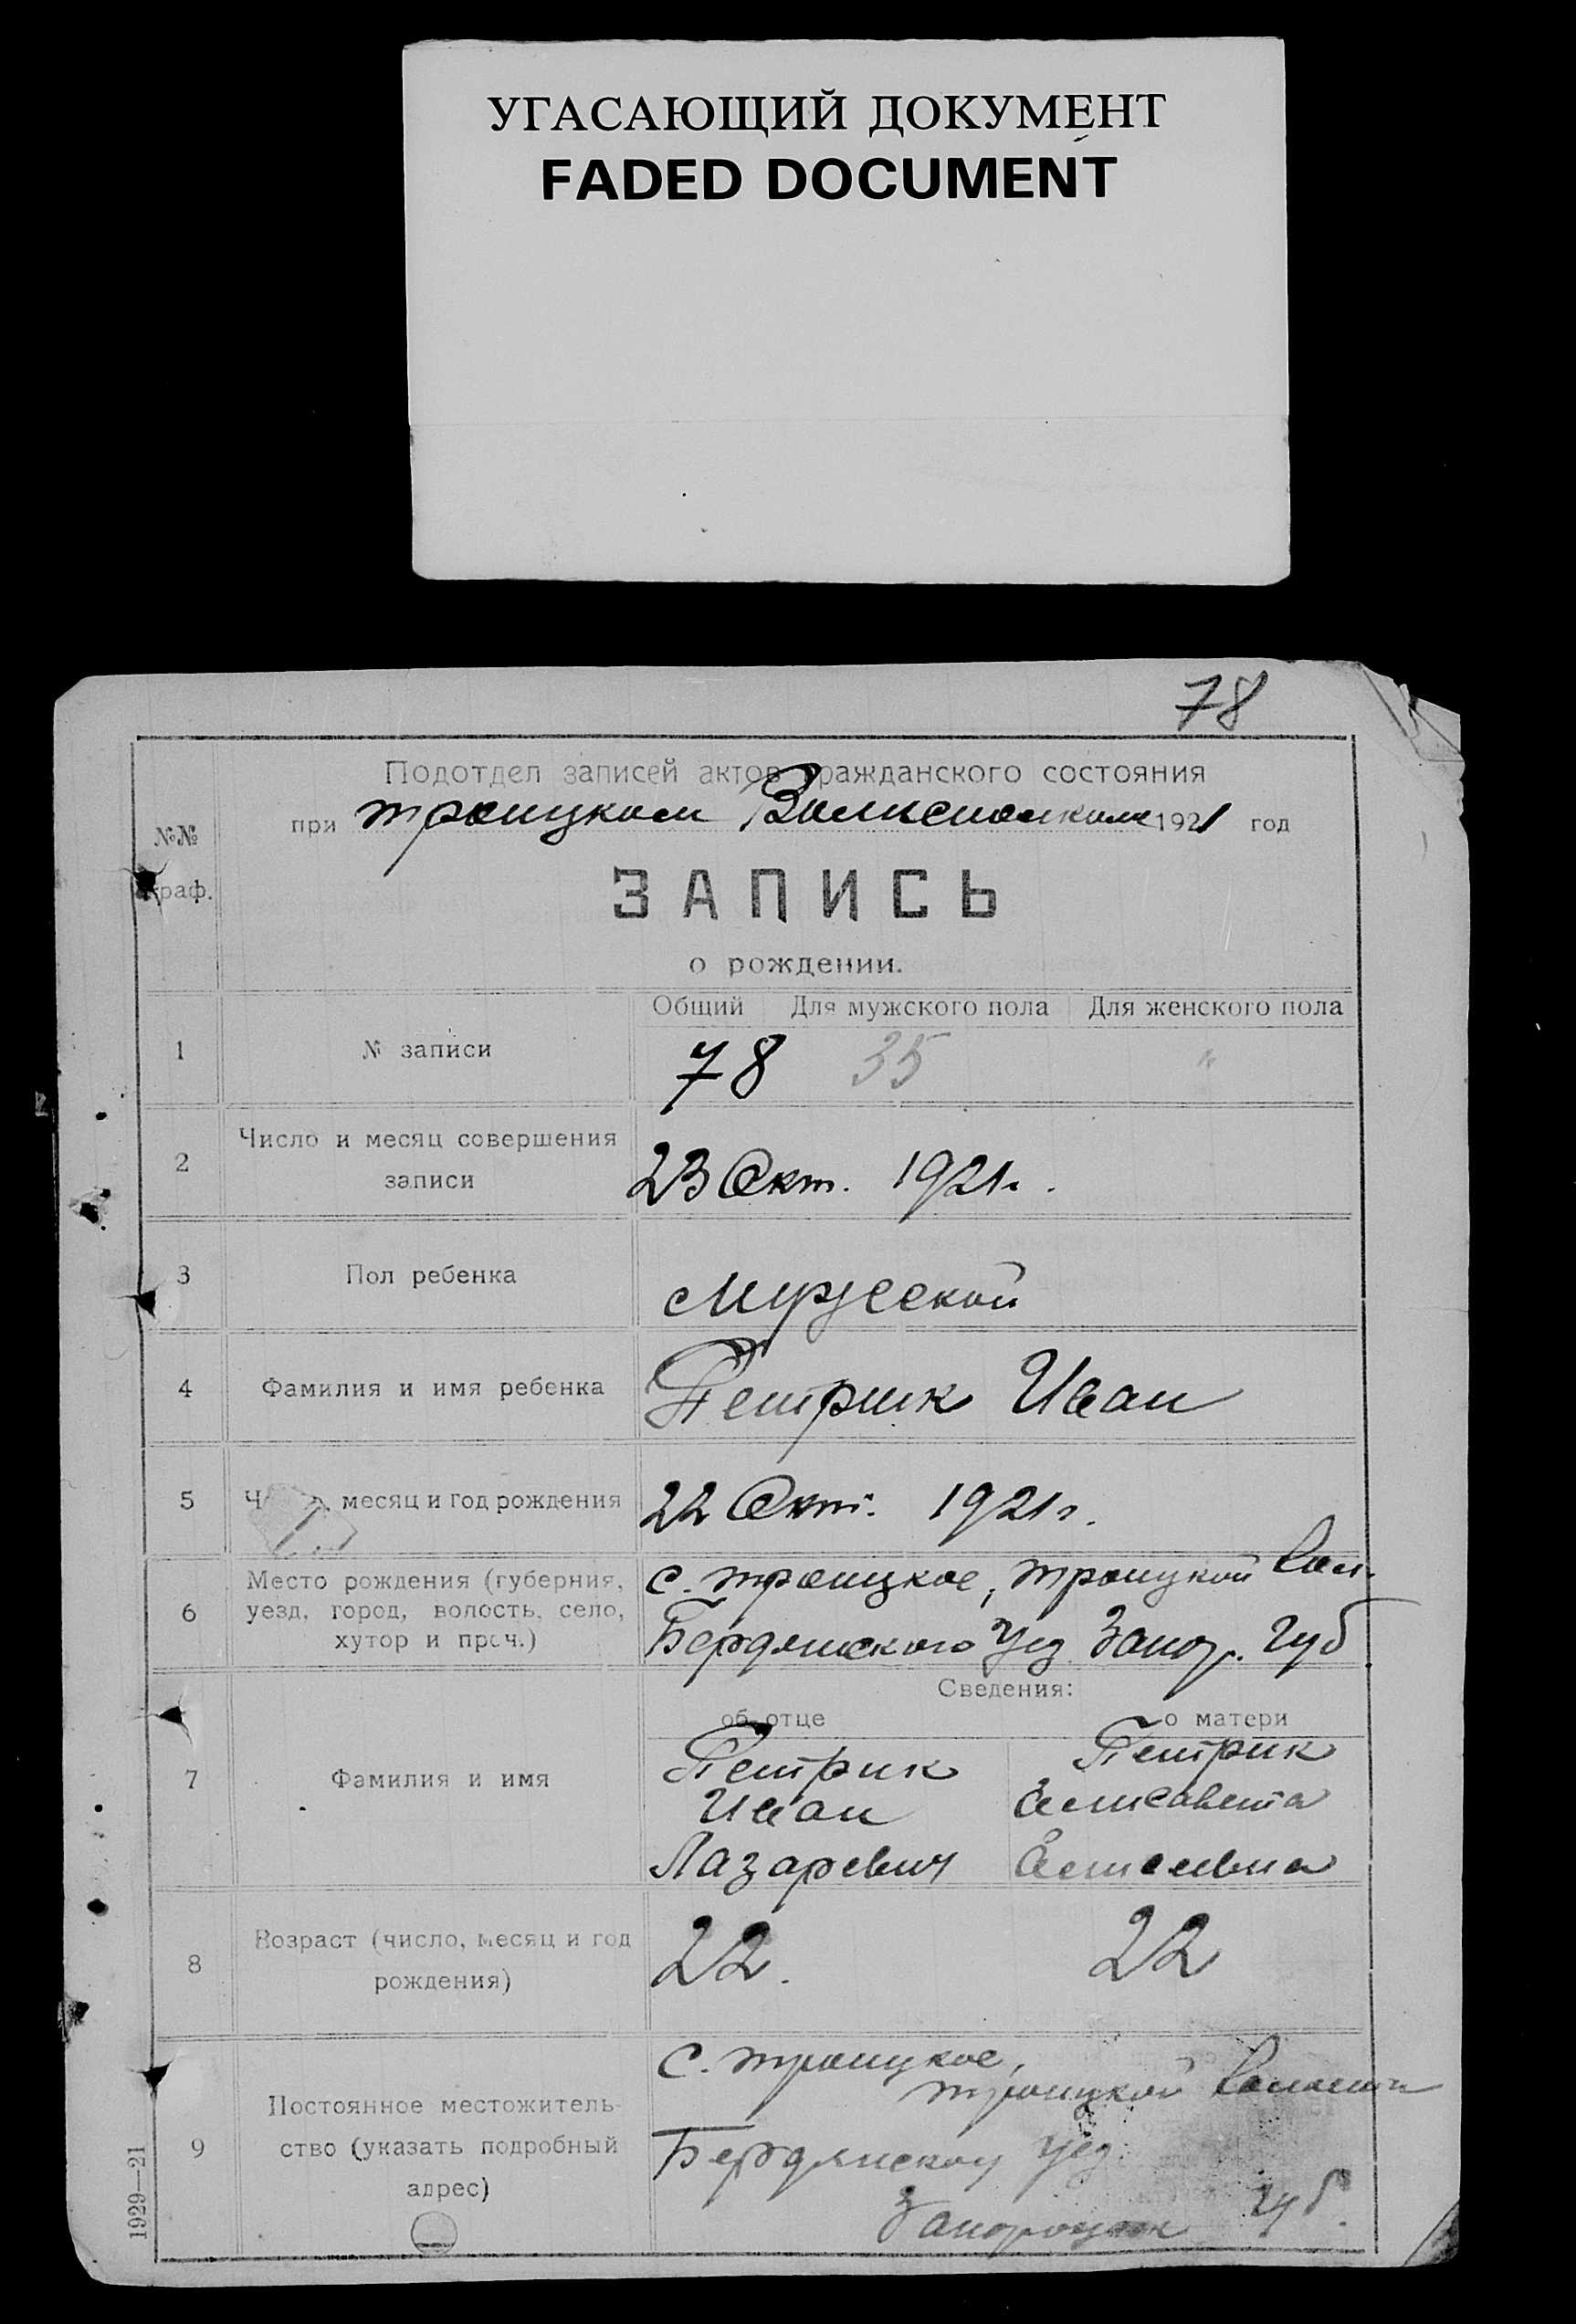 УГАСАЮЩИЙ ДОКУМЕНТ
FADED DOCUMENT
78
Подотдел записей актов гражданского состояния
при троицком 1921 год
№№
граф.
ЗАПИСЬ
о рождении.
Общий Для мужского пола Для женского пола
1 № записи 78 35 "
2 Число и месяц совершения
записи
23 Окт. 1921 г.
3 Пол ребенка Мужеской
4 Фамилия и имя ребенка Петрик Иван
5 месяц и год рождения 22 Окт. 1921 г.
6 Место рождения (губерния,
уезд, город, волость, село,
хутор и проч.)
с. троицкое, троицкой Вол.
Бердянского Уез. Запор. Губ
Сведения:
об отце о матери
7 Фамилия и имя
Петрик
Иван
Лазаревич
Петрик
Елисавета
8 Возраст (число, месяц и год
рождения)
22. 22
9 Постоянное местожитель-
ство (указать подробный
адрес)
с. троицкое,
троицкой Волости
Уез.
Губ.
1929—21